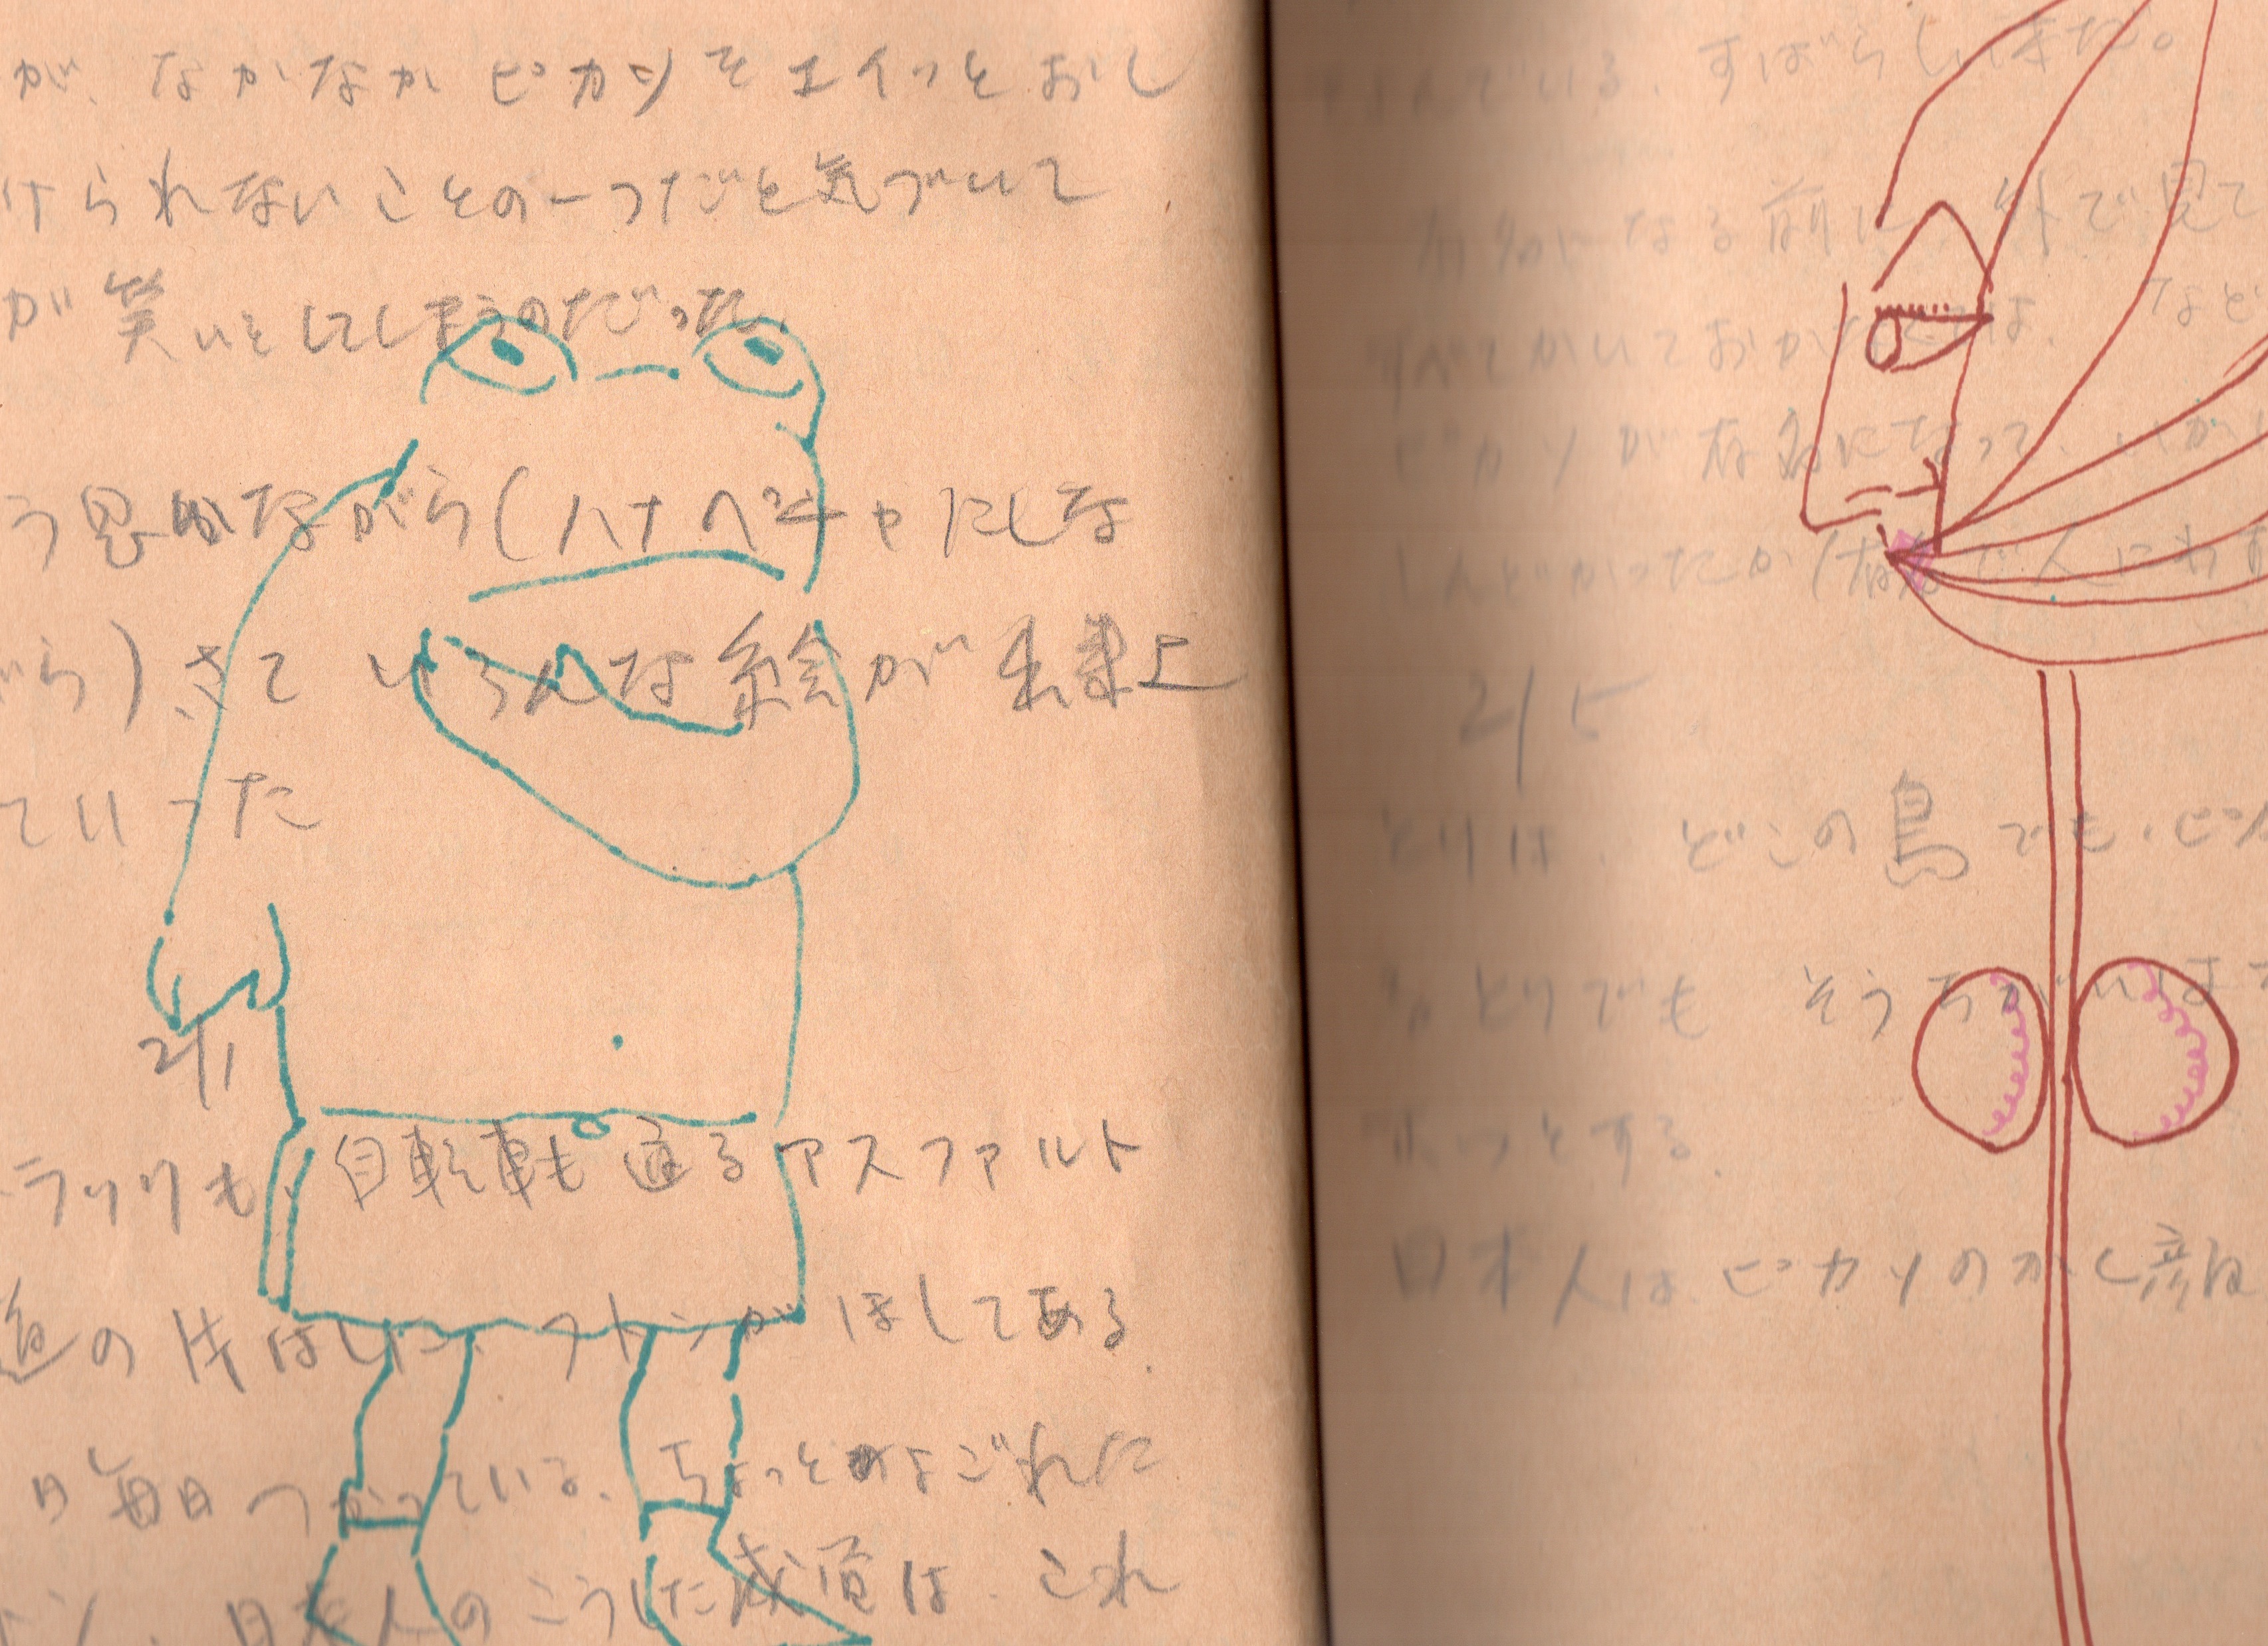 が、なかなかピカソをエイっとおし
けられないことの一つだと気づいて
が笑いをしてしまうのだった。
う思いながら(ハナペチャにしな
がら)さていろんな絵が出来上
ていった
2/1
トラックも、自転車も通るアスファルト
道の片はしに、フトンがほしてある。
日毎日つかっている、ちょっとよごれた
トン、日本人のこうした感覚は、これ
んでいる、すばらしい事だ。
有名になる前に、外で見て
すべてかいておかなくては、など
ピカソが有名になって、いか
しんどかったか(有名で人にわ
2/5
とりは、どこの鳥でも、ピン
なとりでも そうちがいは
ホっとする。
日本人はピカソのかく顔